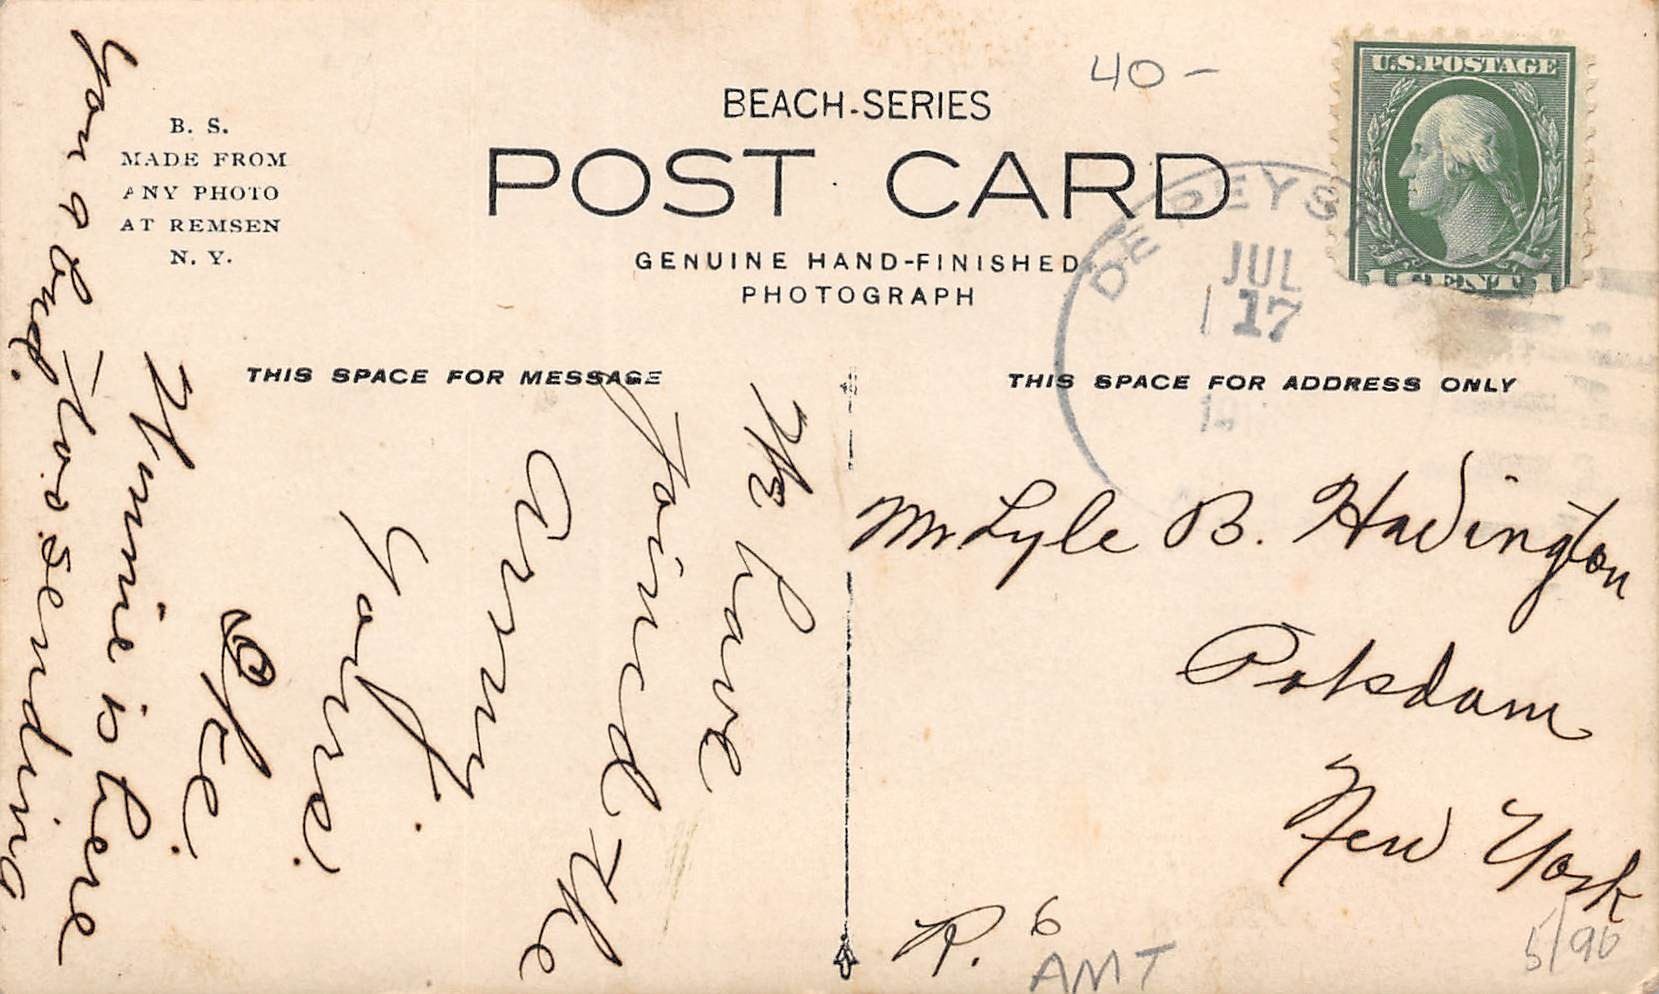 B. S.
MADE FROM
ANY PHOTO
AT REMSEN
N. Y.
BEACH-SERIES
POST CARD
GENUINE HAND-FINISHED
PHOTOGRAPH
40-
U.S.POSTAGE
1 CENT 1
DE PEYS
JUL
17
THIS SPACE FOR MESSAGE
THIS SPACE FOR ADDRESS ONLY
We have
joined the
army.
Yours.
Oke.
Winnie is here
sending
Mr Lyle B. Hadington
Potsdam
New York
R. 6
AMT
5/96